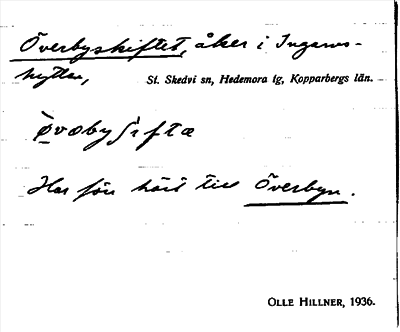 Överbyskiftet, åker i Ingervs-
hyttan, St. Skedvi sn, Hedemora tg, Kopparbergs län.
Har förr hört till Överbyn.
OLLE HILLNER, 1936.